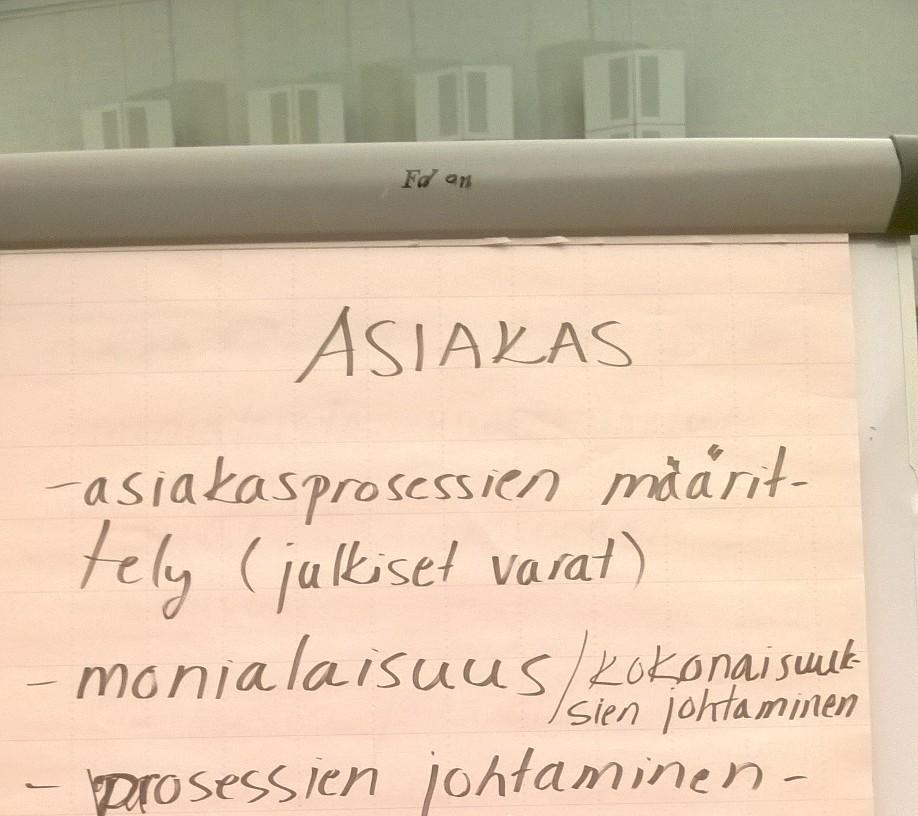 ASIAKAS
- asiakasprosessien määrit-
tely (julkiset varat)
- monialaisuus / kokonaisuuk-
sien johtaminen
- prosessien johtaminen -